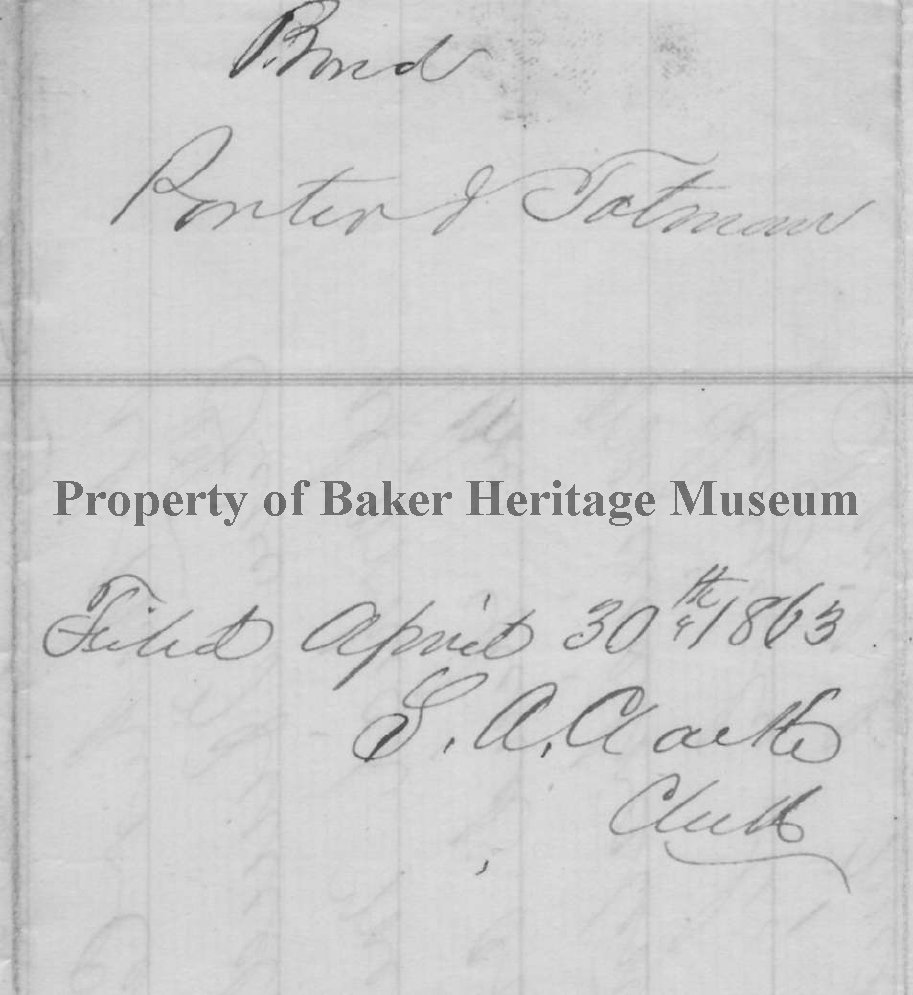 Bond
Porter & Totman
Property of Baker Heritage Museum
Filed April 30th 1863
S. A. Clarke
Clerk